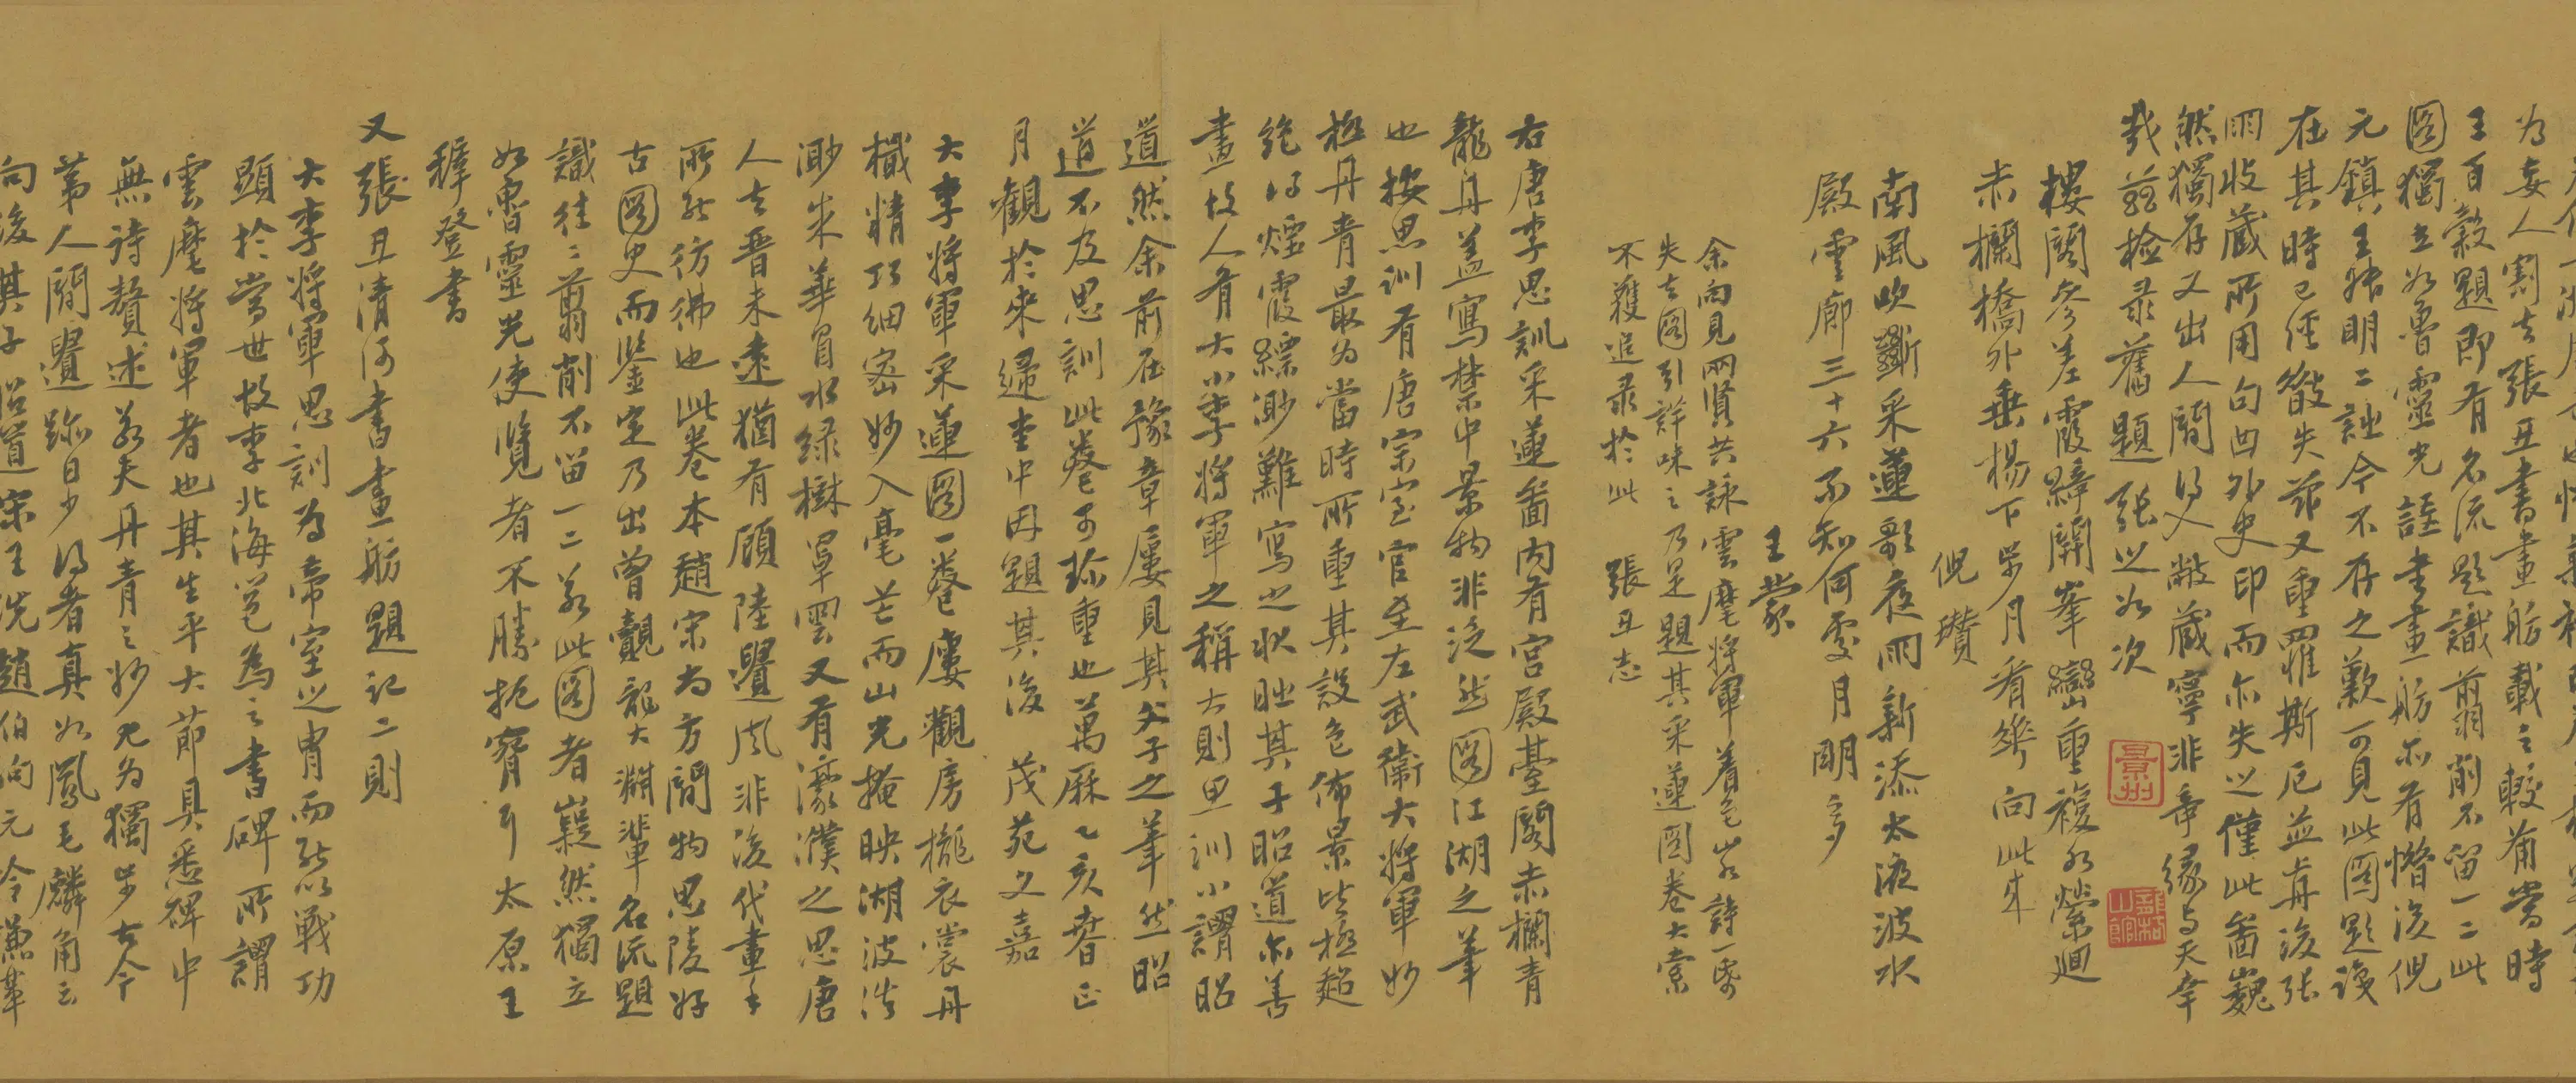 為妄人割去張丑書畫舫載之較莆當時
王百穀題即有名流題識翦削不留一二此
圖獨立如魯靈光語書畫舫亦有惜後倪
元鎮王叔明二詠今不存之歎可見此圖題後
在其時已經散失茲又重羅斯厄並舟後張
雨收藏所用句曲外史印而亦失之僅此圖巍
然獨存又出人間得入敝藏寧非奇緣与天幸
哉茲檢录舊題張之如次
景州
樓閣參差霞綺開峯巒重複水縈廻
赤欄橋外垂楊下步月看華向此來
倪瓚
南風吹斷采蓮歌夜雨新添太液波水
殿雲廊三十六不知何處月明多
王蒙
余向見兩賢共詠雲麾將軍着色山水詩一帋
失去圖引詳味之乃是題其采蓮圖卷大索
不獲追录於此 張丑志
右唐李思訓采蓮啚內有宮殿臺閣赤欄青
龍舟蓋寫禁中景物非泛然圖江湖之筆
也按思訓有唐宗室官至左武衛大將軍妙
極丹青最為當時所重其設色佈景皆極超
絶得煙霞縹渺難寫之狀朏其子昭道亦善
畫故人有大小李將軍之稱大則思訓小謂昭
道然余前在豫章屢見其父子之筆然昭
道不及思訓此卷可珍重也萬厤乙亥春正
月觀於來歸堂中因題其後 茂苑文嘉
大李將軍采蓮圖一卷廔觀房櫳衣裳丹
檝精巧細密妙入毫芒而山光掩映湖波浩
渺朱華冒水綠樹罩雲又有濠濮之思唐
人去晋未遠猶有顧陸遺風非後代畫手
所能彷彿也此卷本趙宋尚方閒物思陵好
古圖史而鑒定乃出曾觀龍大淵輩名流題
識往二翦削不留一二若此圖者嶷然獨立
如魯靈光使覽者不勝抱寶弓太原王
穉登書
又張丑清河書畫舫題記二則
大李將軍思訓為帝室之胄而能以戰功
顯於當世故李北海邕為之書碑所謂
雲麾將軍者也其生平大節具悉碑中
無詩贅述若夫丹青之妙尤為獨步古今
第人間遺跡日少得者真如鳳毛麟角云
向後其子昭道宋王詵趙伯駒元令兼輩